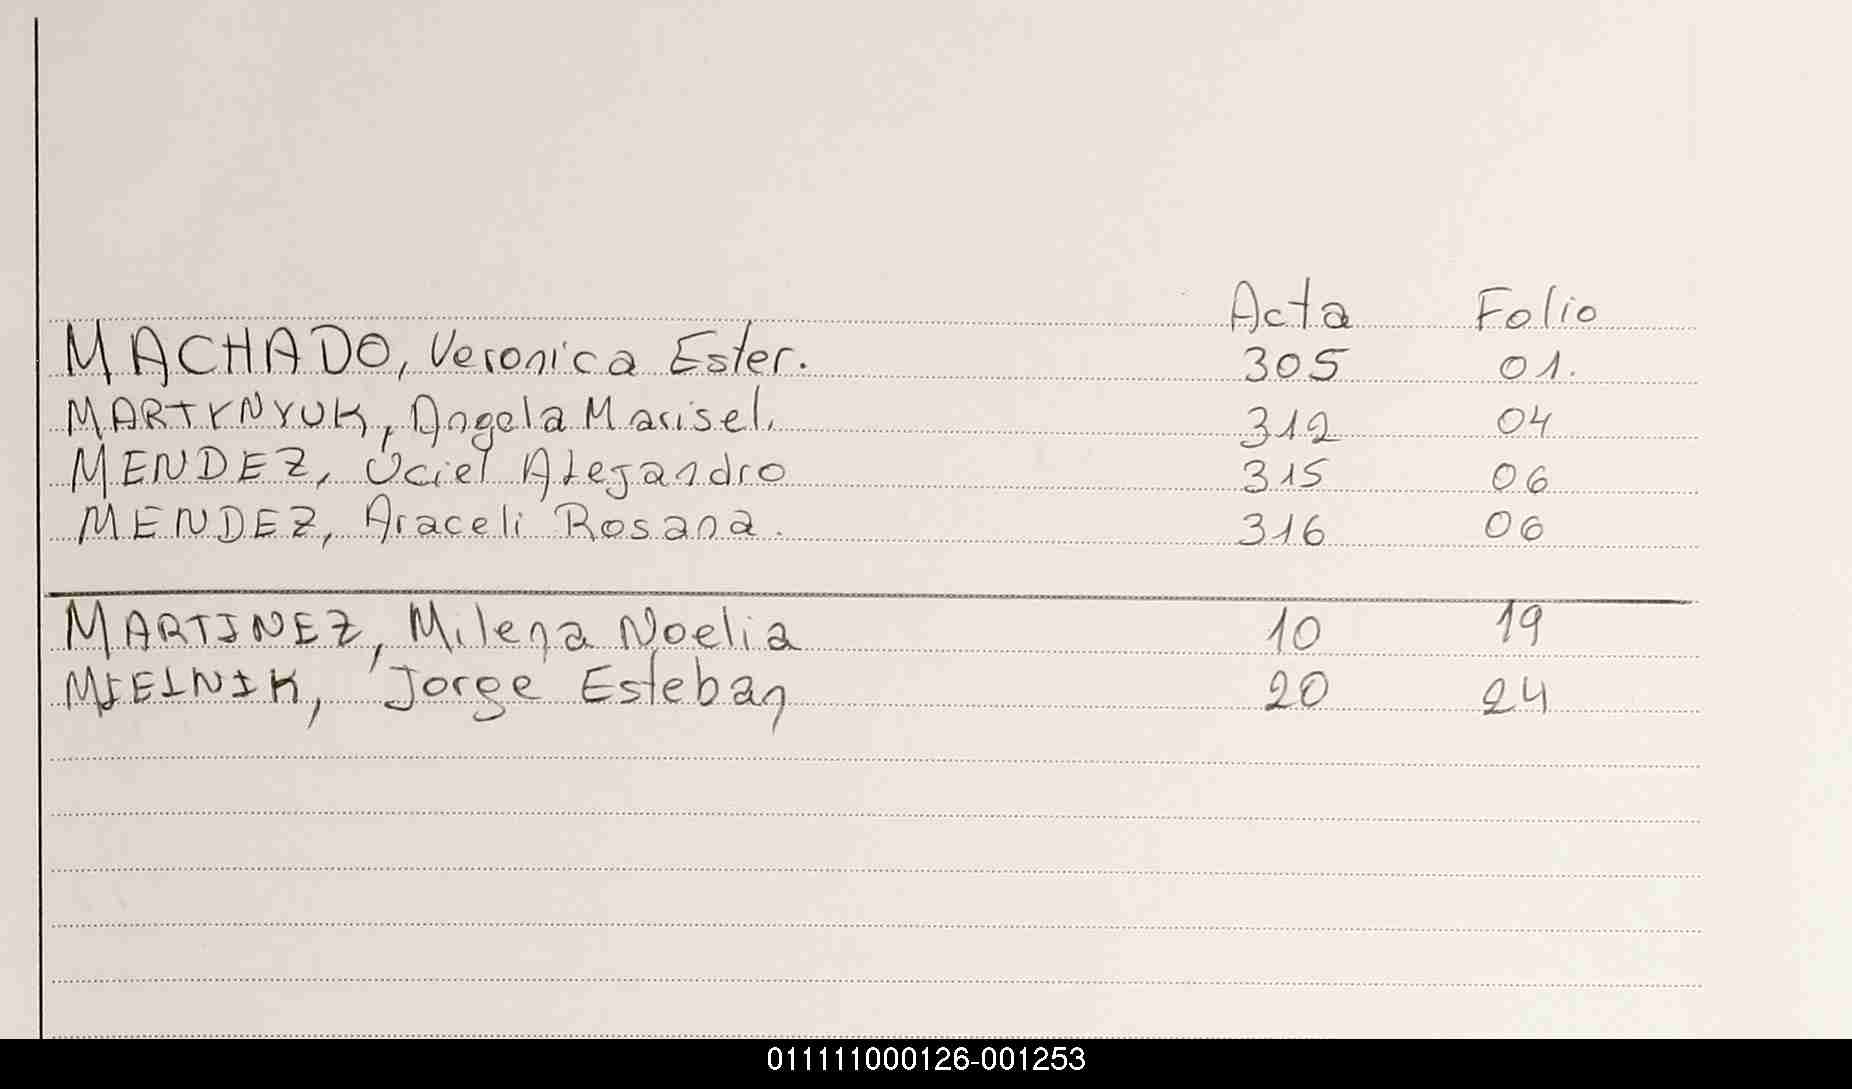 Acta Folio
MACHADO, Veronica Ester. 305 01.
MARTYNYUK, Angela Marisel. 312 04
MENDEZ, Uciel Alejandro 315 06
MENDEZ, Araceli Rosana. 316 06
MARTINEZ, Milena Noelia 10 19
MIELNIK, Jorge Esteban 20 24
011111000126-001253